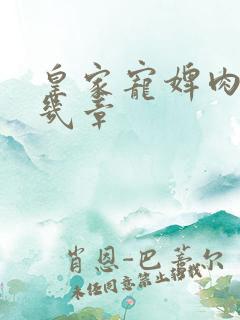 皇家宠婢肉
几章
肖恩-巴蒂尔
未经同意禁止转载